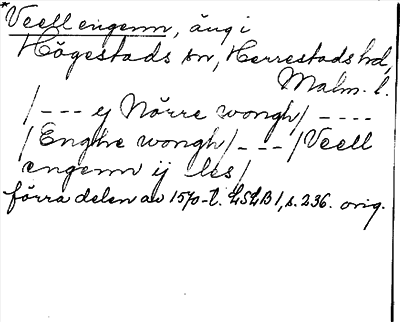 *Veell engenn, äng i
Högestads sn, Herrestads hd,
Malm. l.
/--- ej Nörre wongh/ ----
/Enghe wongh/---/Veell
engenn ij les/
förra delen av 1570-t. LSLB 1, s. 236. orig.